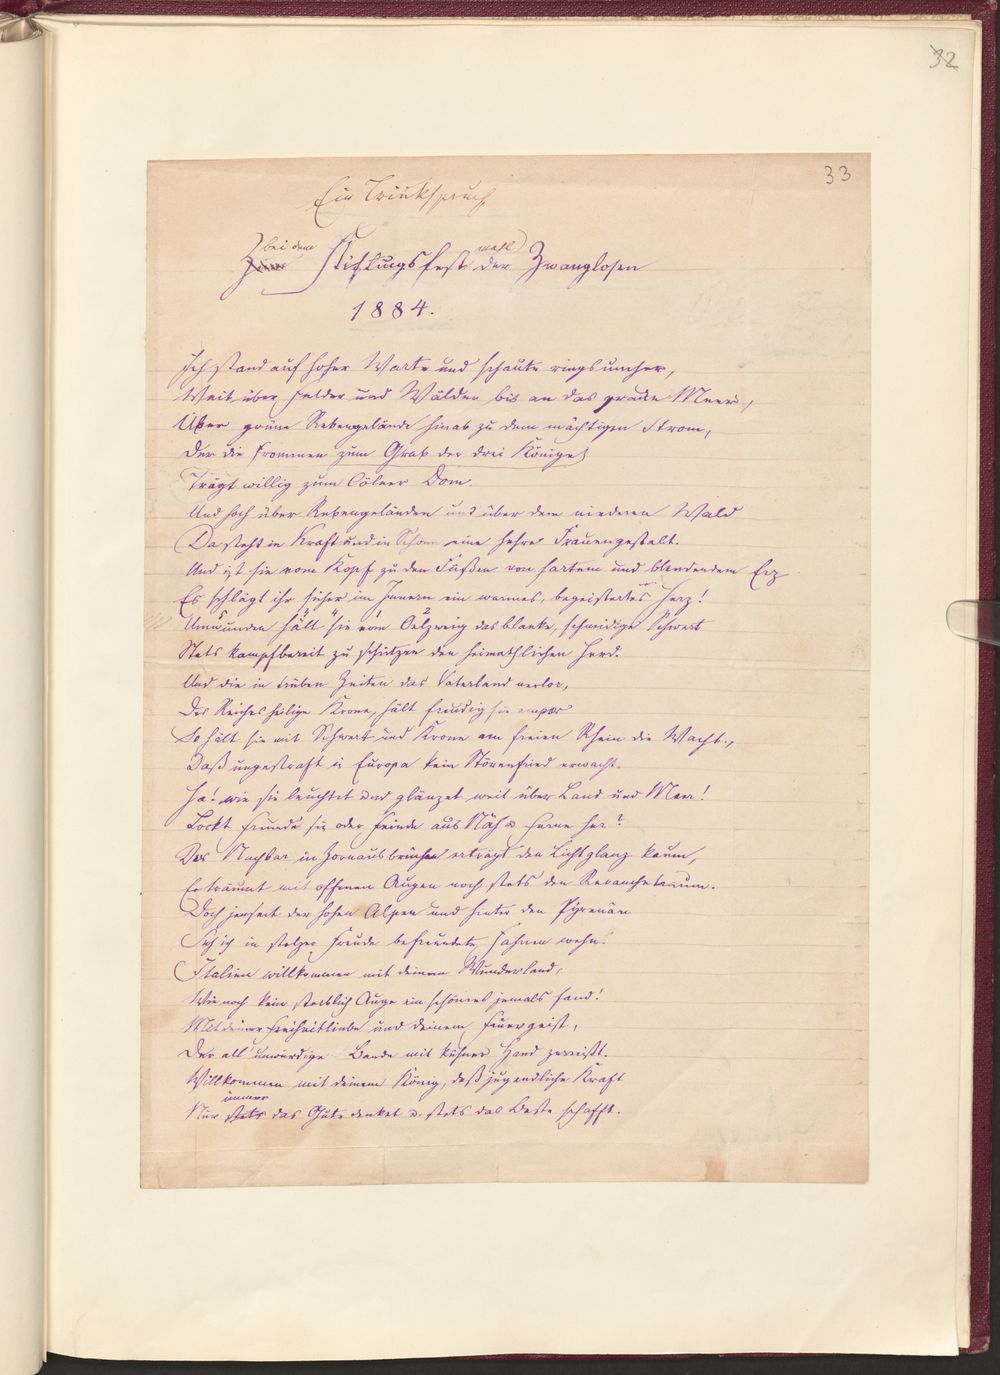 32
33
Ein Trinkspruch
bei dem mahl
Stiftungsfest der Zwanglosen
1884.
Ich stand auf hoher Warte und schaute rings umher,
Weit über Felder und Wälder bis an das graue Meer,
Über grüne Rebengelände hinab zu dem mächtigen Strom,
Der die Frommen zum Grab der drei Könige
Trägt willig zum Cölner Dom.
Und hoch über Rebengeländen und über dem niederen Wald
Da steht in Kraft und in Schöne eine hehre Frauengestalt.
Und ist sie vom Kopf zu den Füßen von hartem und blendendem Erz
Es schlägt ihr sicher im Innern ein warmes, begeistertes Herz!
Umwunden hält sie vom Oelzweig das blanke, schneidige Schwert
Stets kampfbereit zu schützen den heimathlichen Herd.
Und die in trüben Zeiten das Vaterland verlor,
Des Reiches heilige Krone, hält freudig sie empor
So hält sie mit Schwert und Krone am freien Rhein die Wacht,
Daß ungestraft in Europa kein Störenfried erwacht.
Ha! wie sie leuchtet und glänzet weit über Land und Meer!
Lockt Freunde sie oder Feinde aus Näh u Ferne her?
Der Nachbar in Zornausbrüchen erträgt den Lichtglanz kaum,
Er träumt mit offenen Augen noch stets den Revanchetraum.
Doch jenseit der hohen Alpen und hinter den Pyrenäen
Seh ich in stolzer Freude befreundete Fahnen wehn.
Italien willkommen mit deinem Wunderland,
Wie noch kein sterblich Auge ein schöneres jemals fand!
Mit deiner Freiheitliebe und deinem Feuergeist,
Der all' unwürdige Bande mit kühner Hand zerreißt.
Willkommen mit deinem König, deß jugendliche Kraft
immer
Nur stets das Gute denket u. stets das Beste schafft.